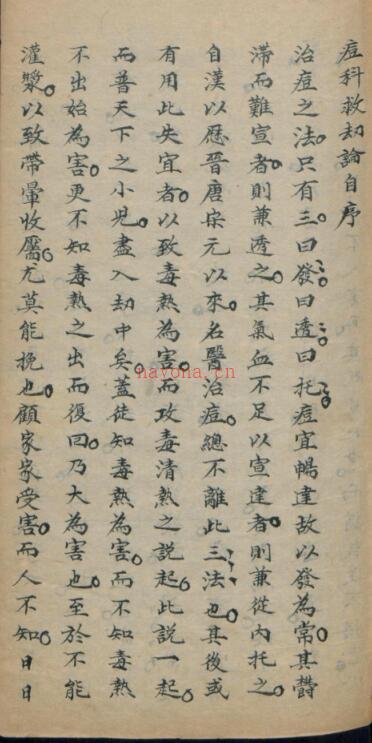 痘科救劫論自序
治痘之法只有三曰發曰透曰托痘宜暢達故以發為常其欝
滯而難宣者則兼透之其氣血不足以宣達者則兼從內托之
自漢以歷晉唐宋元以來名醫治痘總不離此三法也其後或
有用此失宜者以致毒熱為害而攻毒清熱之説起此説一起
而普天下之小兒盡入劫中矣蓋徒知毒熱為害而不知毒熱
不出始為害更不知毒熱之出而復回乃大為害也至於不能
灌漿以致帶暈收靨尤莫能挽也顧家家受害而人不知日日
nayona.cn